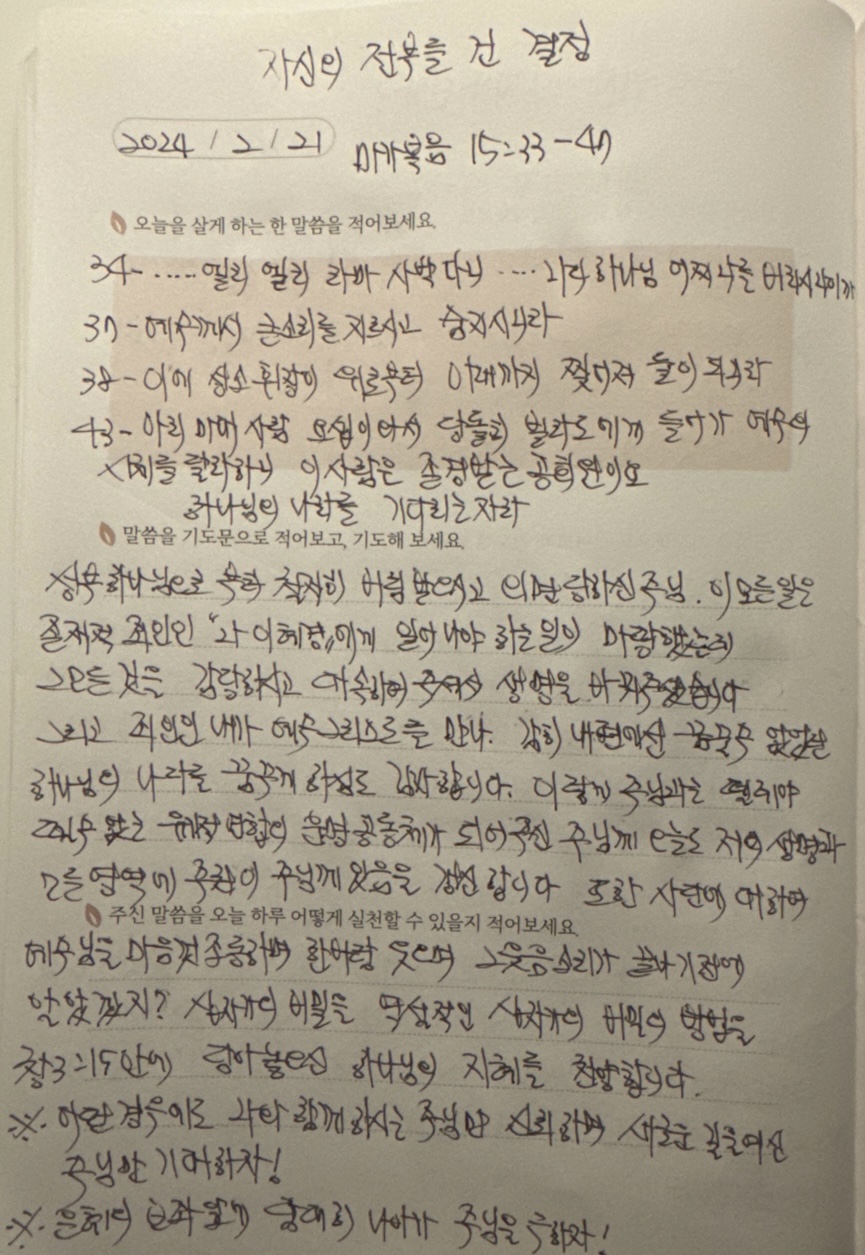 자신의 전부를 건 결정
2024 / 2 / 21 마가복음 15:33-47
오늘을 살게 하는 한 말씀을 적어보세요.
34- ..... 엘리 엘리 라마 사박다니 .... 나의 하나님 어찌 나를 버리시나이까
37 - 예수께서 큰소리를 지르시고 숨지시니라
38 - 이에 성소 휘장이 위로부터 아래까지 찢어져 둘이 되니라
43 - 아리마대 사람 요셉이 와서 당돌히 빌라도에게 들어가 예수의
시체를 달라하니 이 사람은 존경받는 공회원이요
하나님의 나라를 기다리는 자라
말씀을 기도문으로 적어보고, 기도해 보세요.
성부 하나님으로 부터 철저히 버림 받으시고 외면 당하신 주님. 이 모든 일은
존재적 죄인인 "나 이혜경"에게 일어나야 하는 일이 마땅했는데
그 모든 것을 감당하시고 대속하여 주셔서 생명을 바꿔주셨습니다
그리고 죄인인 내가 예수 그리스도를 만나. 감히 내편에선 꿈꿀수 없었던
하나님의 나라를 꿈꾸게 하심도 감사합니다. 이렇게 주님과는 뗄래야
뗄 수 없는 유기적 연합의 운명 공동체가 되어주신 주님께 오늘도 저의 생명과
모든 영역에 주권이 주님께 있음을 갱신합니다 또한 사탄에 대하여
주신 말씀을 오늘 하루 어떻게 실천할 수 있을지 적어보세요.
예수님을 마음껏 조롱하며 한바탕 웃으며 그 웃음소리가 끝나기 전에
알았겠지? 십자가의 비밀을 역설적인 십자가의 비밀의 방법을
창3:15 안에 담아 놓으신 하나님의 지혜를 찬양합니다.
※. 어떤 경우에도 나와 함께 하시는 주님만 신뢰하며 새로운 길을 여신
주님만 기대하자!
※. 은혜의 보좌 앞에 담대히 나아가 주님을 구하자!